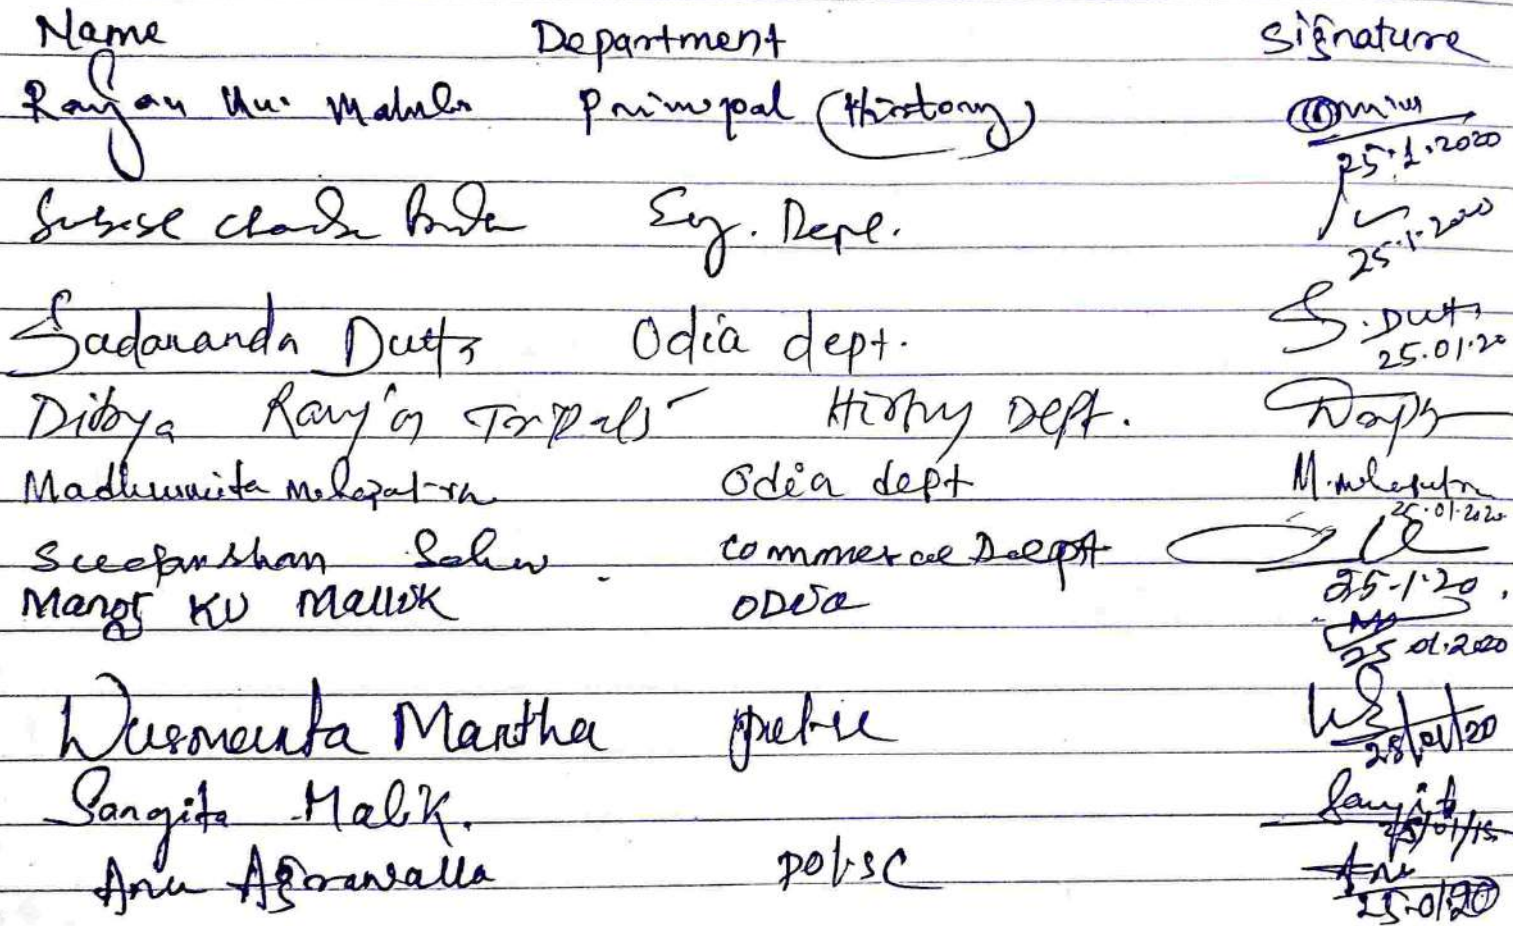 Name Department Signature
Ranjan Ku. Principal (History)
25.1.2020
Eng. Dept.
25.1.2020
Sadananda Dutta Odia dept. S. Dutta
25.01.20
Dibya Ranjan History Dept.
Madhusmita Mohapatra Odia dept M. Mohapatra
25.01.2020
Sahu Commerce Deptt
25-1-20
Manoj KU Mallik ODia
25.01.2020
Dusmanta Mantha
Sangita Malik. Sangita
Anu Agrawalla Pol.sc Anu
25.01.20